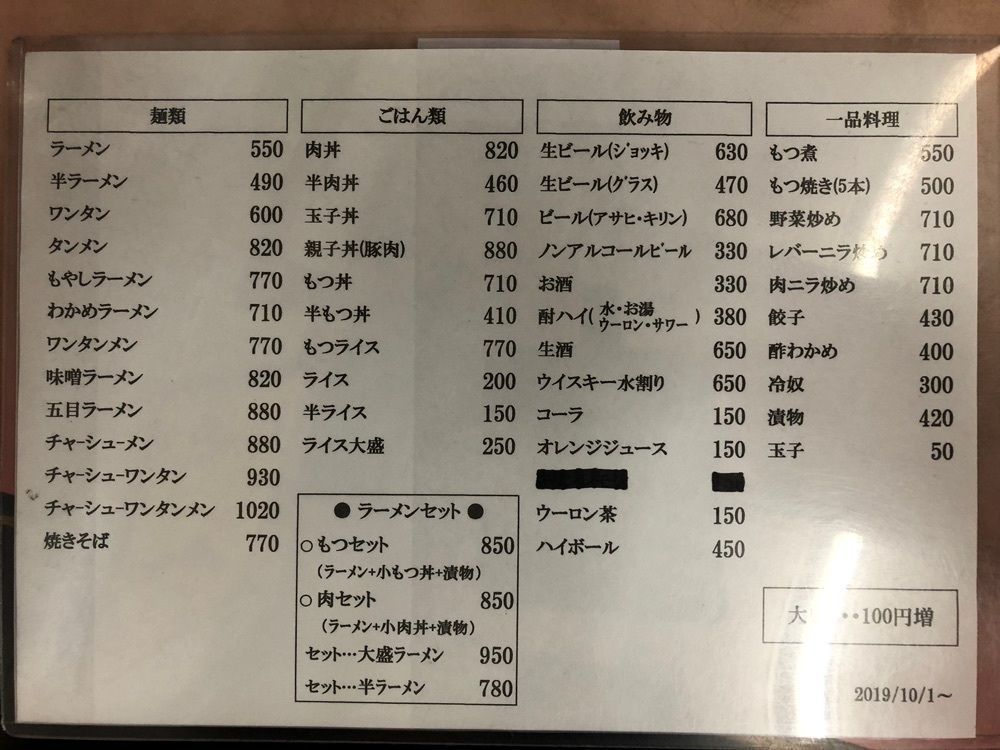 麺類
ラーメン 550
半ラーメン 490
ワンタン 600
タンメン 820
もやしラーメン 770
わかめラーメン 710
ワンタンメン 770
味噌ラーメン 820
五目ラーメン 880
チャーシューメン 880
チャーシューワンタン 930
チャーシューワンタンメン 1020
焼きそば 770
ごはん類
肉丼 820
半肉丼 460
玉子丼 710
親子丼(豚肉) 880
もつ丼 710
半もつ丼 410
もつライス 770
ライス 200
半ライス 150
ライス大盛 250
● ラーメンセット ●
○もつセット 850
(ラーメン+小もつ丼+漬物)
○肉セット 850
(ラーメン+小肉丼+漬物)
セット…大盛ラーメン 950
セット…半ラーメン 780
飲み物
生ビール(ジョッキ) 630
生ビール(グラス) 470
ビール(アサヒ・キリン) 680
ノンアルコールビール 330
お酒 330
酎ハイ(水・お湯 ウーロン・サワー) 380
生酒 650
ウイスキー水割り 650
コーラ 150
オレンジジュース 150
ウーロン茶 150
ハイボール 450
一品料理
もつ煮 550
もつ焼き(5本) 500
野菜炒め 710
レバーニラ炒め 710
肉ニラ炒め 710
餃子 430
酢わかめ 400
冷奴 300
漬物 420
玉子 50
大 ・・100円増
2019/10/1～